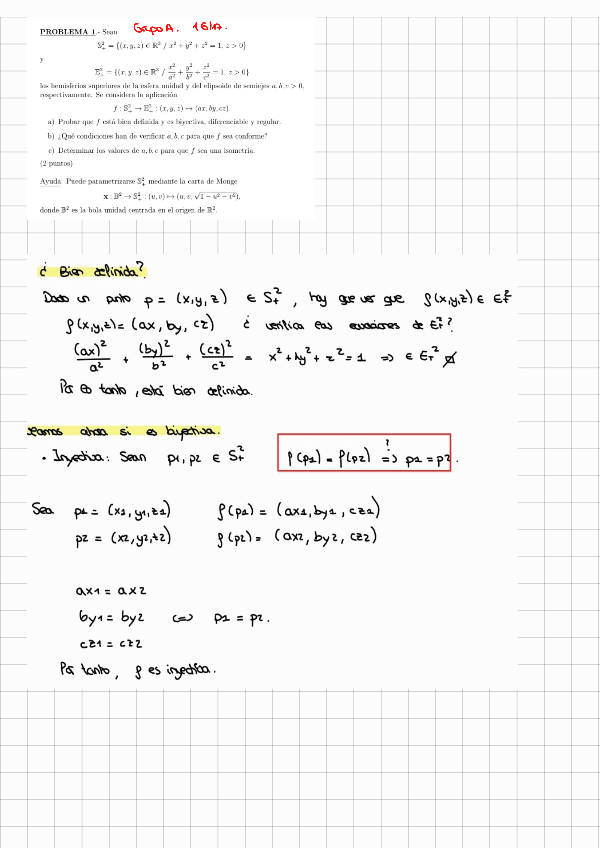 Grupo A. 16/17.
PROBLEMA 1.- Sean
S²₊ = {(x, y, z) ∈ R³ / x² + y² + z² = 1, z > 0}
y
E²₊ = {(x, y, z) ∈ R³ / x²/a² + y²/b² + z²/c² = 1, z > 0}
los hemisferios superiores de la esfera unidad y del elipsoide de semiejes a, b, c > 0,
respectivamente. Se considera la aplicación
f : S²₊ → E²₊ : (x, y, z) ↦ (ax, by, cz).
a) Probar que f está bien definida y es biyectiva, diferenciable y regular.
b) ¿Qué condiciones han de verificar a, b, c para que f sea conforme?
c) Determinar los valores de a, b, c para que f sea una isometría.
(2 puntos)
Ayuda: Puede parametrizarse S²₊ mediante la carta de Monge
x : B² → S²₊ : (u, v) ↦ (u, v, √(1 − u² − v²)),
donde B² es la bola unidad centrada en el origen de R².
¿ Bien definida?
Dado un punto p = (x,y,z) ∈ S₊², hay que ver que f(x,y,z) ∈ E₊²
f(x,y,z) = (ax, by, cz) ¿ verifica las ecuaciones de E₊²?
(ax)²/a² + (by)²/b² + (cz)²/c² = x² + y² + z² = 1 => ∈ E₊²
Por lo tanto, está bien definida.
Veamos ahora si es biyectiva.
• Inyectiva: Sean p1, p2 ∈ S₊² f(p1) = f(p2) ?=> p1 = p2.
Sea p1 = (x1, y1, z1) f(p1) = (ax1, by1, cz1)
p2 = (x2, y2, z2) f(p2) = (ax2, by2, cz2)
ax1 = ax2
by1 = by2 <=> p1 = p2.
cz1 = cz2
Por tanto, f es inyectiva.